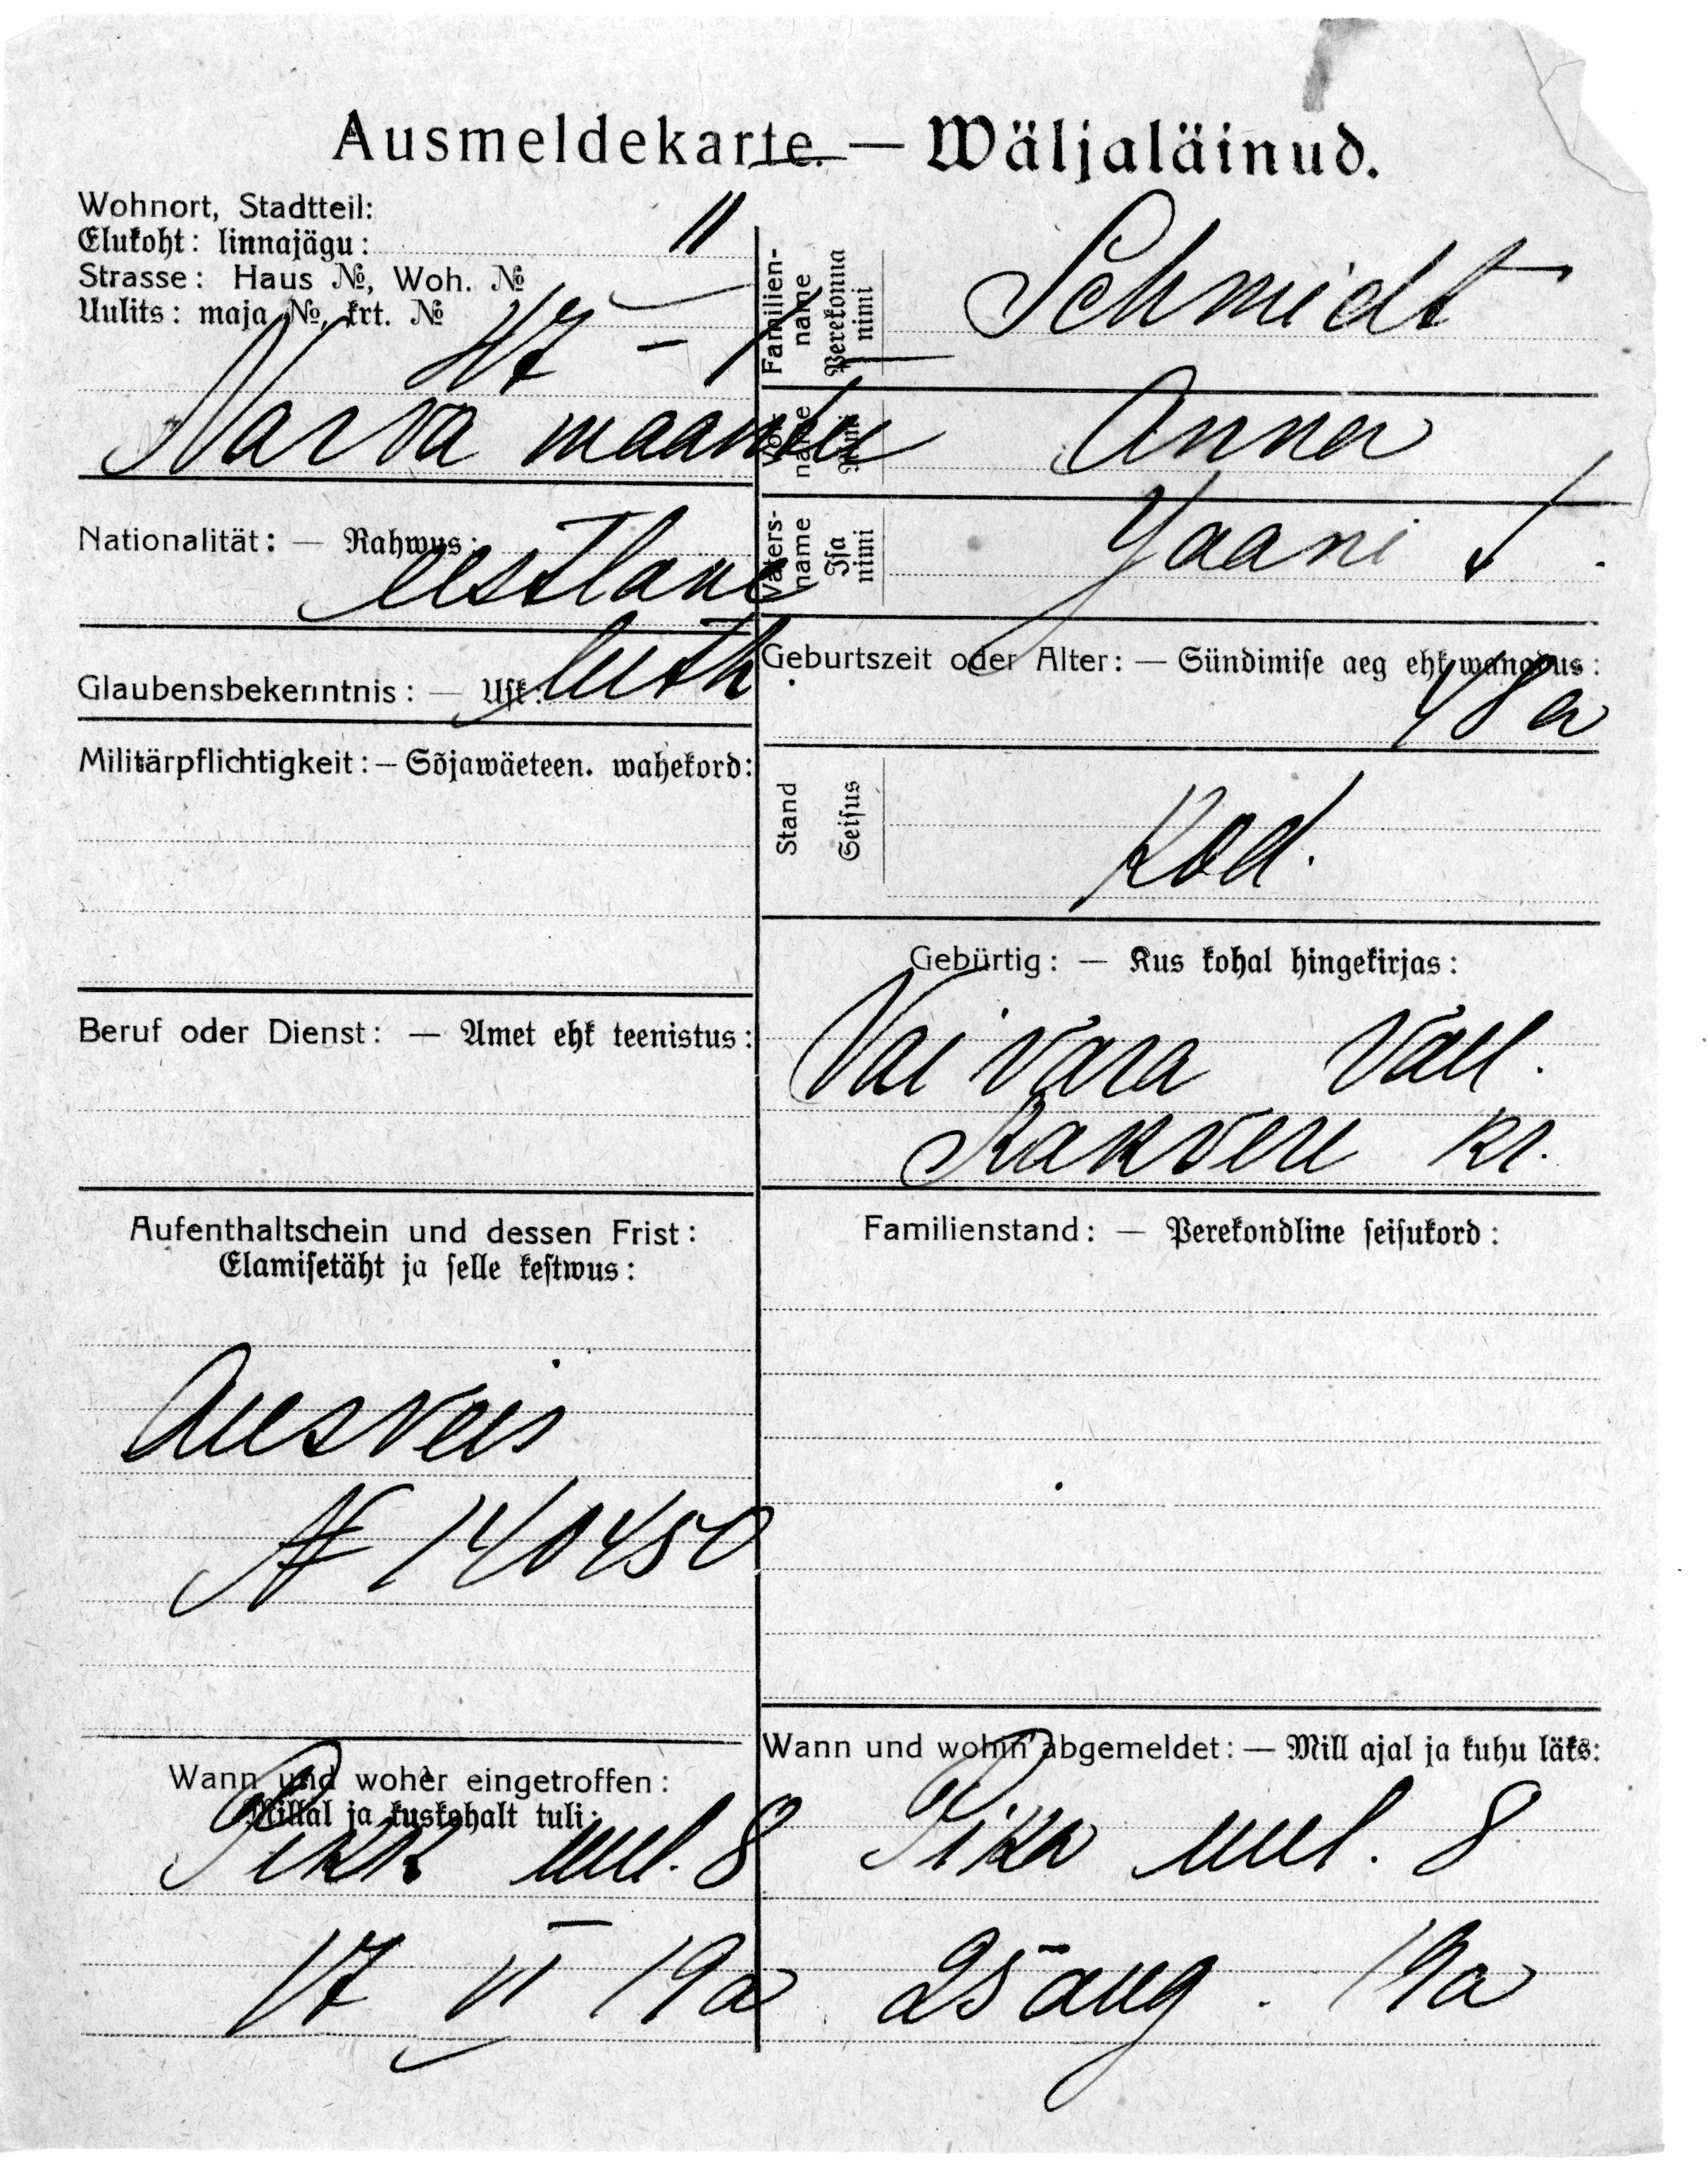 Ausmeldekarte. — Wäljaläinud.
Wohnort, Stadtteil:
Elukoht: linnajägu: II
Strasse: Haus №, Woh. №
Uulits: maja №, krt. №
47 – 1
Narva maantee
Nationalität: — Rahwus:
eestlane
Glaubensbekenntnis: — Usk: luth.
Militärpflichtigkeit: — Sõjawäeteen. wahekord:
Beruf oder Dienst: — Amet ehk teenistus:
Aufenthaltschein und dessen Frist:
Elamisetäht ja selle kestwus:
Ausveis
№ 140450
Wann und woher eingetroffen:
Millal ja kuskohalt tuli:
Pikk uul. 8
17 VI 19a
Familien-
name
Perekonna
nimi
Schmidt
Vor-
name
Nimi
Anna
Vaters-
name
Isa
nimi
Jaani
Geburtszeit oder Alter: — Sündimise aeg ehk wanadus:
48 a
Stand
Seisus
Kod.
Gebürtig: — Kus kohal hingekirjas:
Vaivara vall.
Rakvere kr.
Familienstand: — Perekondline seisukord:
Wann und wohin abgemeldet: — Mill ajal ja kuhu läks:
Pika uul. 8
25 aug. 19a